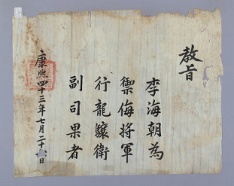 教旨
李海朝為
禦侮將軍
行龍驤衛
副司果者
康熙四十三年七月二十日